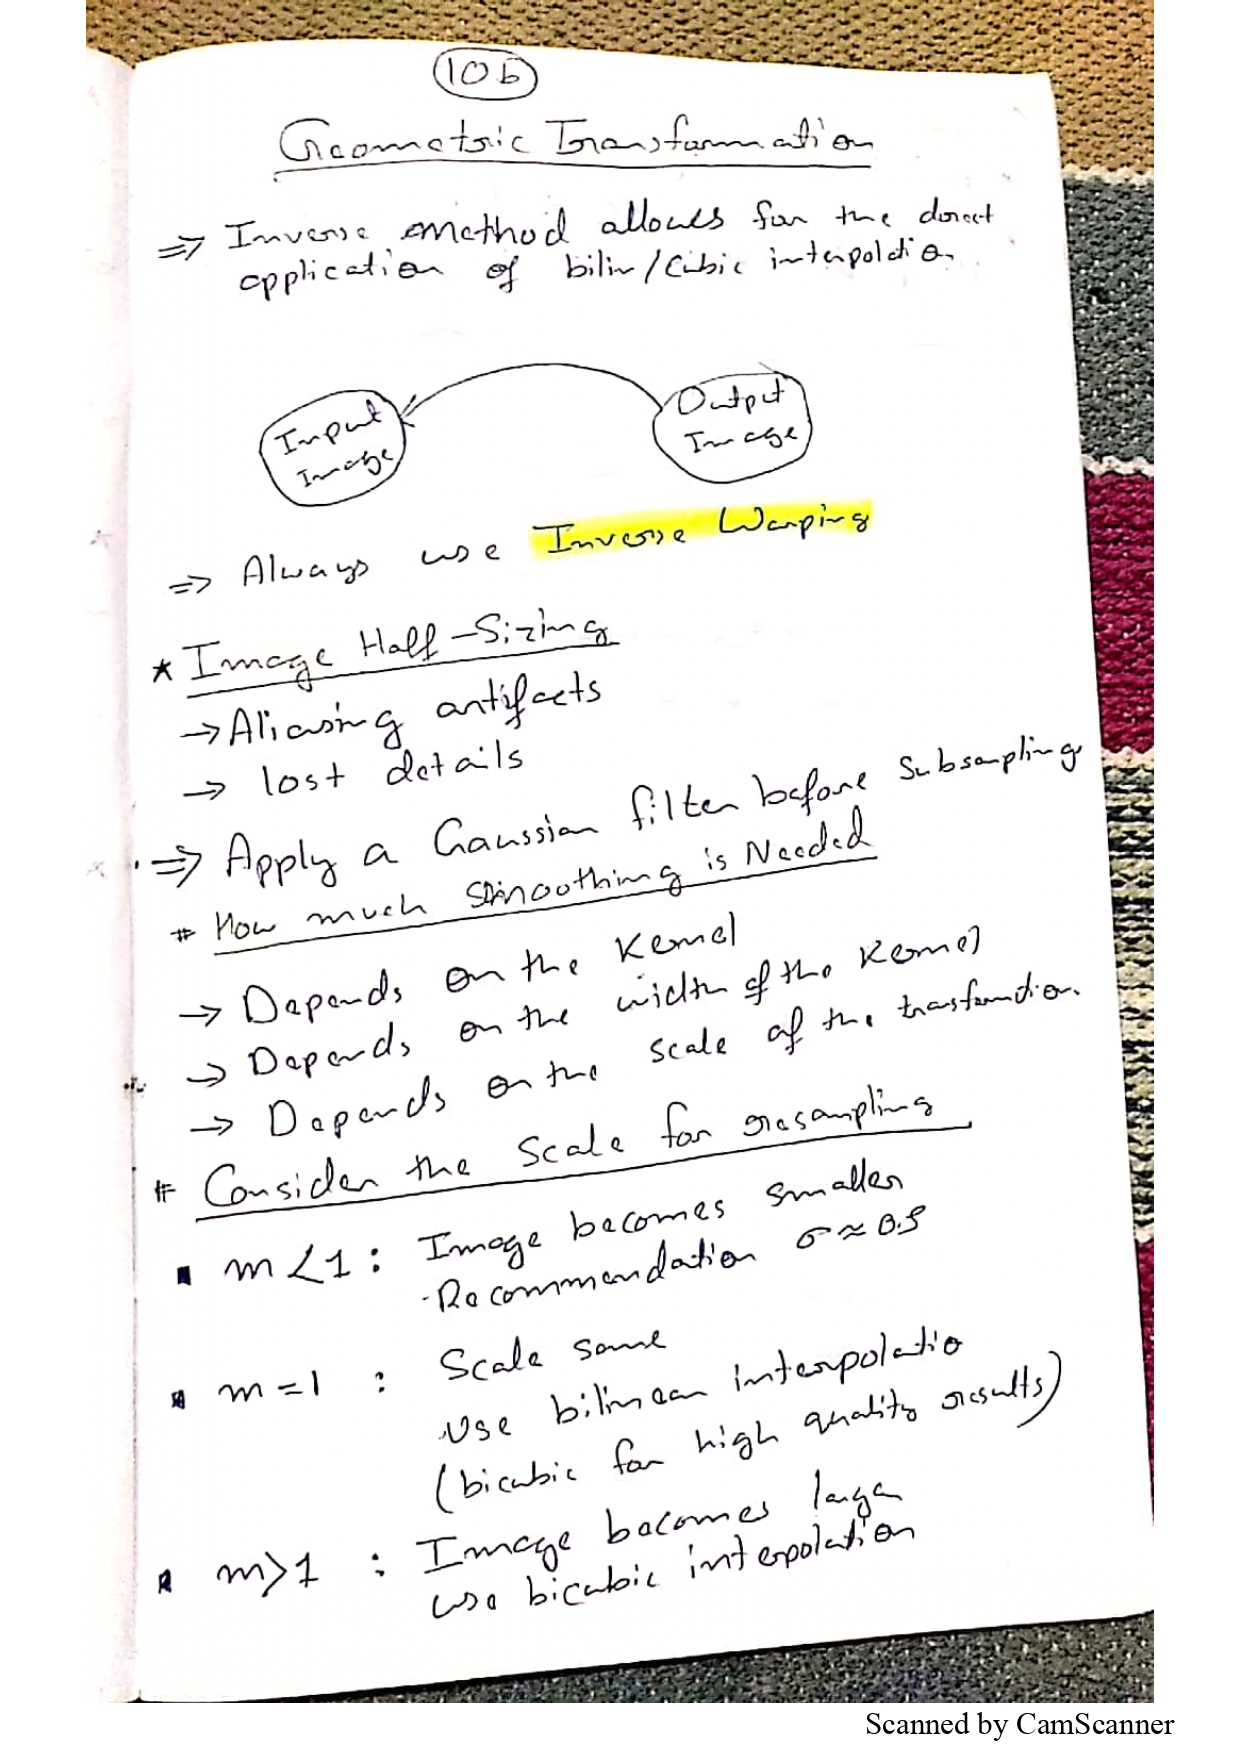 10b
Geometric Transformation
⇒ Inverse method allows for the direct
application of bilin/Cubic interpolation
Input
Image
Output
Image
⇒ Always use Inverse Warping
* Image Half-Sizing
→ Aliasing artifacts
→ lost details
⇒ Apply a Gaussian filter before Subsampling
# How much smoothing is Needed
→ Depends on the Kernel
→ Depends on the width of the Kernel
→ Depends on the scale of the transformation.
# Consider the Scale for resampling
▪ m<1 : Image becomes smaller
Recommendation σ ≈ 0.5
▪ m=1 : Scale same
Use bilinear interpolatio
(bicubic for high quality results)
▪ m>1 : Image becomes large
use bicubic interpolation
Scanned by CamScanner